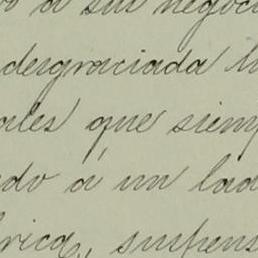 vo a sus negoci
desgraciada h
ales que siemp
ado á un lad
brica, suspens